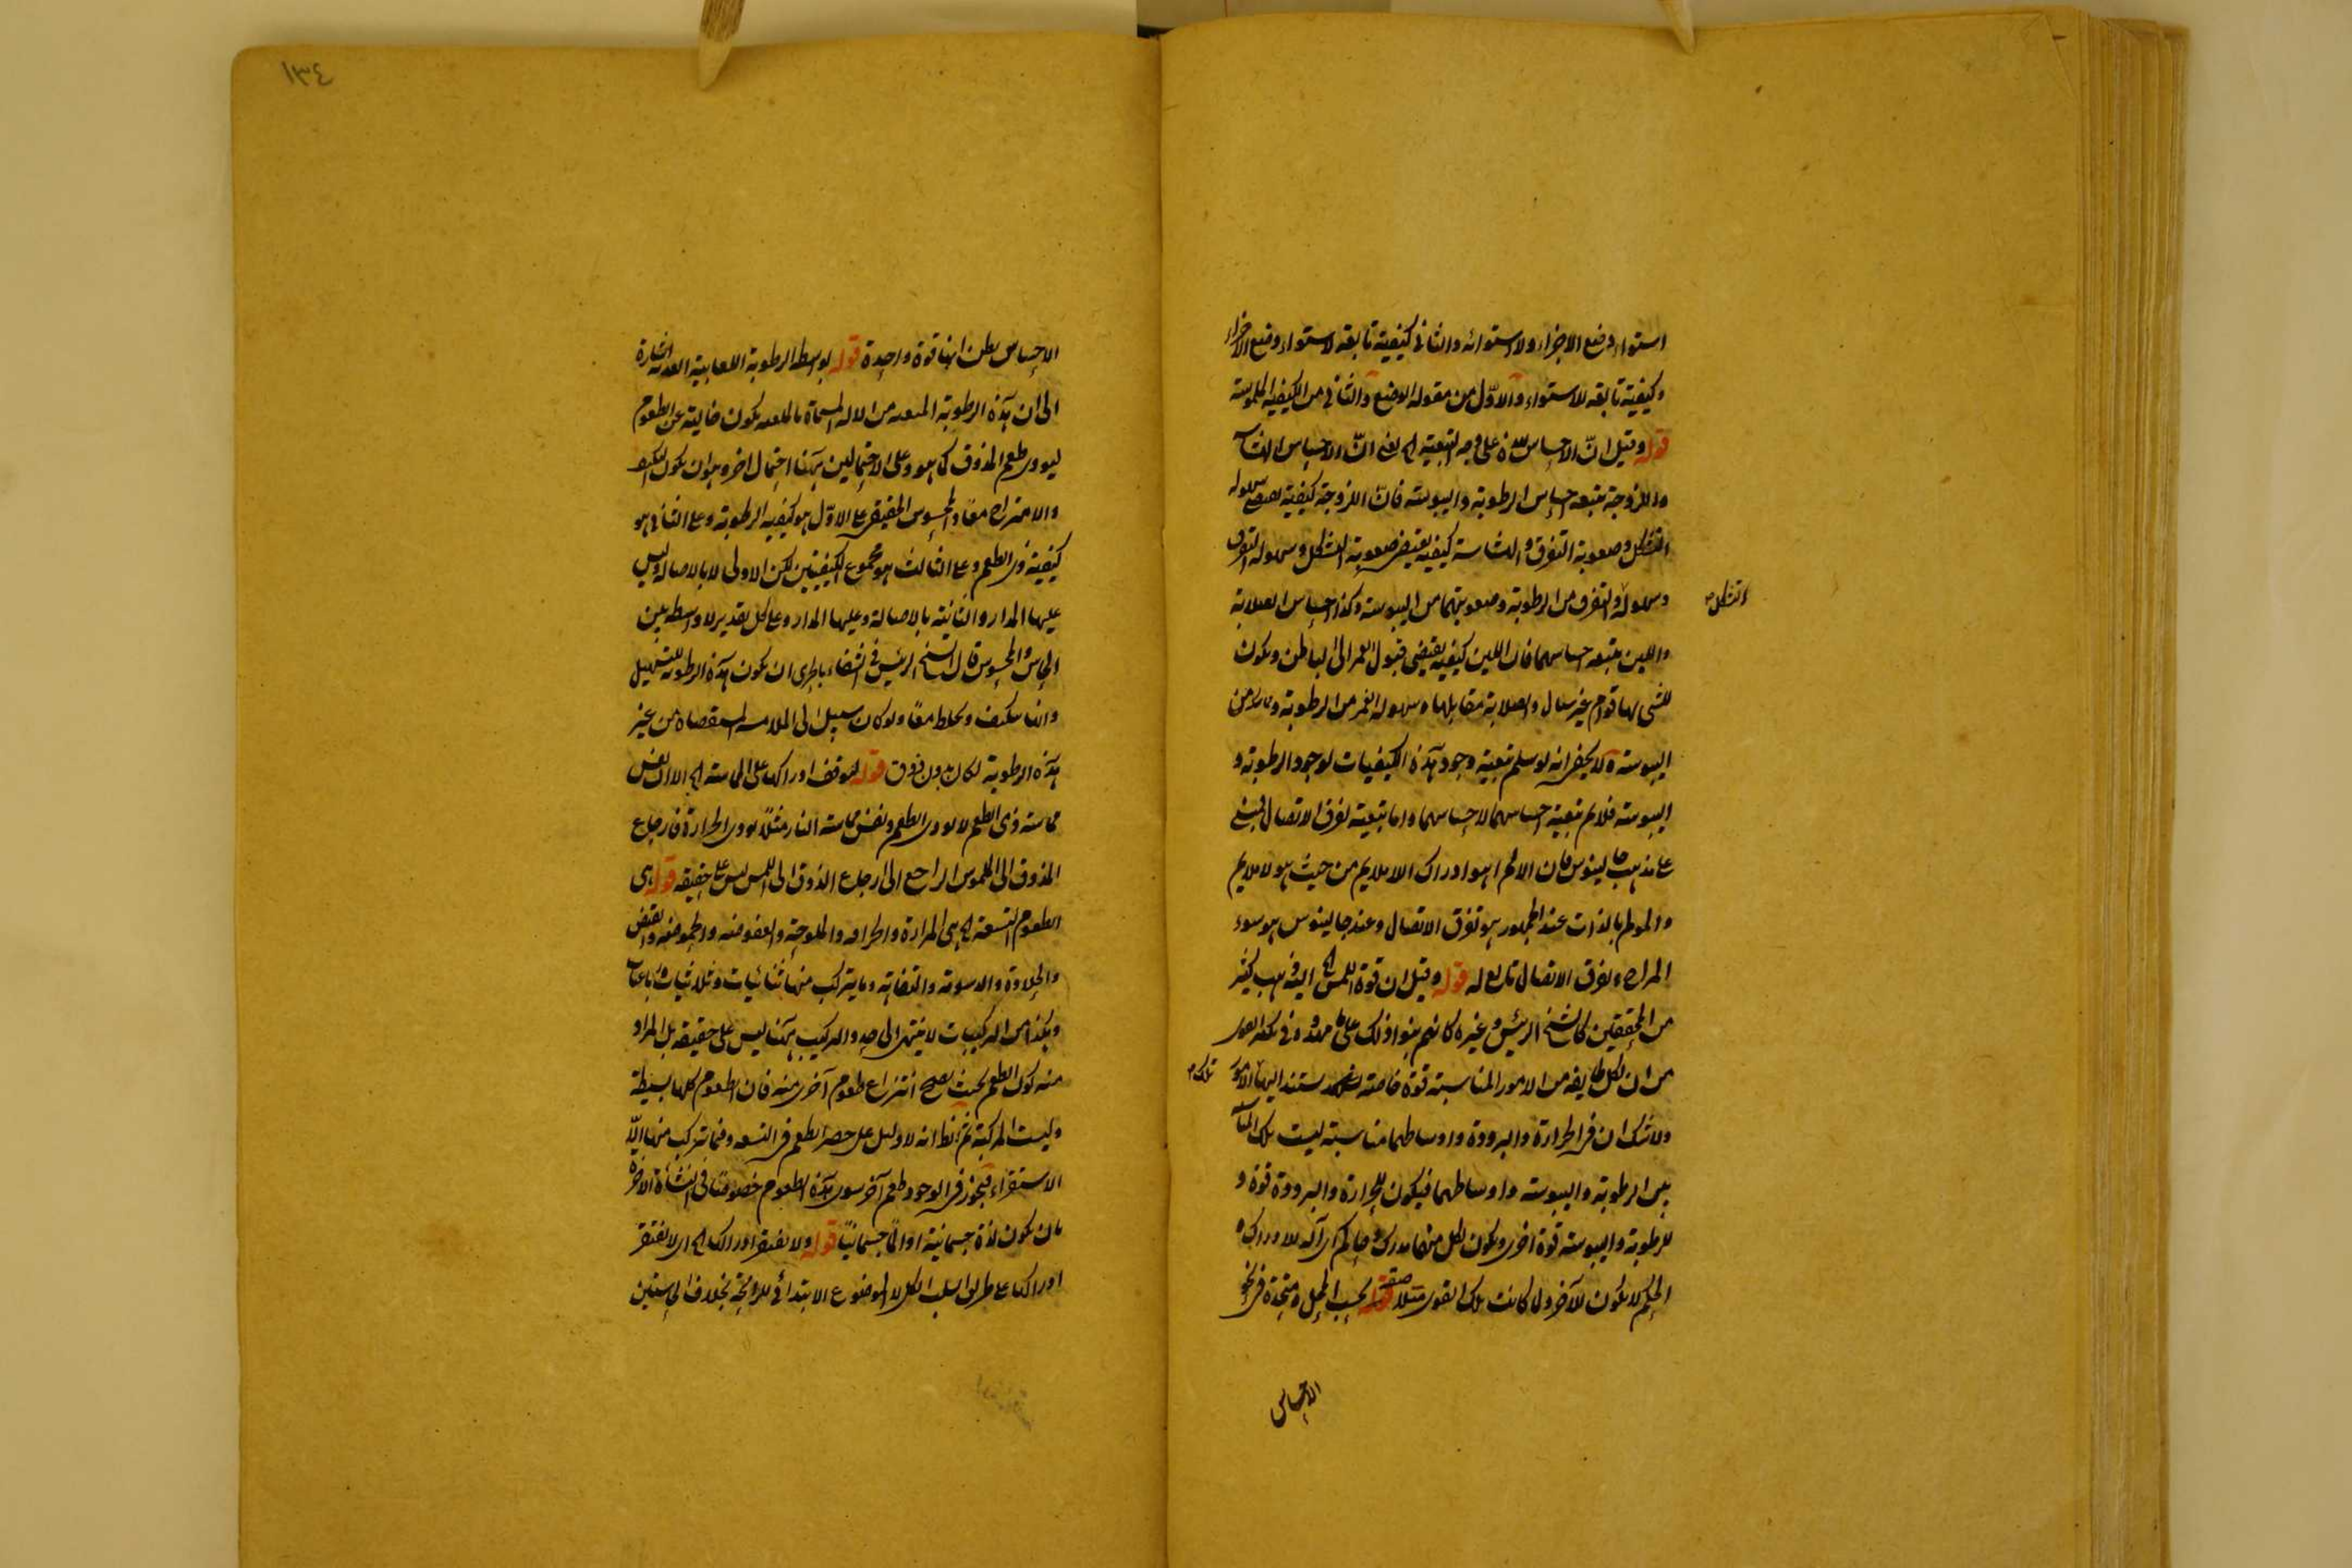 استواء وضع الاجزاء ولا استوائه والثانى كيفية تابعة لاستواء وضع الاجزاء
وكيفية تابعة للاستواء والاوّل من مقولة الوضع والثانى من الكيفية الملموسة
قوله وقيل انّ الاحساس بهذه على وجه التبعية الخ يعنى انّ الاحساس بالهشاشة
واللزوجة يتبعه احساس الرطوبة واليبوسة فان اللزوجة كيفية يقتضى سهولة
التشكل وصعوبة التفرق والهشاشة كيفية يقتضى صعوبة التشكل وسهولة التفرق
وسهولة والتفرق من الرطوبة وصعوبتهما من اليبوسة وكذا احساس الصلابة
التشكل صح
واللين يتبعه احساسهما فان اللين كيفية يقتضى قبول الغمر الى الباطن ويكون
للشى بها قوام غير سيال والصلابة مقابلها وسهولة الغمر من الرطوبة وتماسك من
اليبوسة ولا يخفى انه لو سلم تبعية وجود هذه الكيفيات لوجود الرطوبة و
اليبوسة فلا يتم تبعية احساسهما لاحساسهما واما تبعية تفرق الاتصال فمبنى
على مذهب جالينوس فان الالم انما هو ادراك الملايم من حيث هو لا ملايم
والمولم بالذات عند الجمهور هو تفرق الاتصال وعند جالينوس هو سوء
المزاج وتفرق الاتصال تابع له قوله وقيل ان قوة اللمس الخ اليه ذهب كثير
من المحققين كالشيخ الرئيس وغيره كانهم بنوا ذلك على ما مهدوه فى تكثر القوى
من ان لكل طايفة من الامور المناسبة قوة خاصة يستند اليها الامور
تلك صح
ولا شك ان فى الحرارة والبرودة واوساطهما مناسبة ليست تلك المناسبة
بين الرطوبة واليبوسة واوساطهما فيكون للحرارة والبرودة قوة و
للرطوبة واليبوسة قوة اخرى ويكون لكل منها مدرك وحاكم اى آلة للادراك و
الحكم لا يكون للآخر ولما كانت تلك القوى متلاصقة بحسب المحل ومتحدة فى نحو
الاحساس
١٣٤
الاحساس يظن انها قوة واحدة قوله بواسطة الرطوبة اللعابية العذبة اشارة
الى ان هذه الرطوبة المنبعثة من الالة المسماة بالملعبة يكون خالية عن الطعوم
ليودى طعم المذوق كما هو وعلى الاحتمالين ههنا احتمال اخر وهو ان يكون التكيف
والامتزاج معًا والمحسوس الحقيقى على الاوّل هو كيفية الرطوبة وعلى الثانى هو
كيفية ذى الطعم وعلى الثالث هو مجموع الكيفيتين لكن الاولى لا بالاصالة وليس
عليها المدار والثانية بالاصالة وعليها المدار وعلى كل تقدير لا واسطة بين
الحاس والمحسوس قال الشيخ الرئيس فى الشفاء بالحرى ان يكون هذه الرطوبة للتسهيل
وانها يتكيف ويختلط معًا ولو كان سبيل الى الملامسة المستقصاة من غير
هذه الرطوبة لكان بدون ذوق قوله لتوقف ادراكها على المماسة الخ الا ان نفس
مماسة ذى الطعم لا يودى الطعم ونفس مماسة النار مثلًا يودى الحرارة فارجاع
المذوق الى الملموس الراجع الى ارجاع الذوق الى اللمس ليس على حقيقة قوله هى
الطعوم التسعة الخ هى المرارة والحرافة والملوحة والعفوصة والحموضة والقبض
والحلاوة والدسومة والتفاهة وما يتركب منها ثنائيات وثلاثيات ورباعيات
وهكذا من التركيبات لا ينتهى الى حد والتركيب ههنا ليس على حقيقة بل المراد
منه كون الطعم بحيث يصح انتزاع طعوم آخرى منه فان الطعوم كلها بسيطة
وليست المركبة ثم الظاهر انه لا دليل على حصر الطعم فى التسعة وفيما تتركب منها الّا
الاستقراء فيجوز فى الوجود طعم آخر سوى هذه الطعوم خصوصًا فى النشأة الاخرة
بان يكون لذة جسمانية او المًا جسمانيًا قوله ولا يفتقر ادراك الخ اى لا يفتقر
ادراكها على طريق السلب الكلى للوضوع الابتدائى للرائحة بخلاف الحاستين